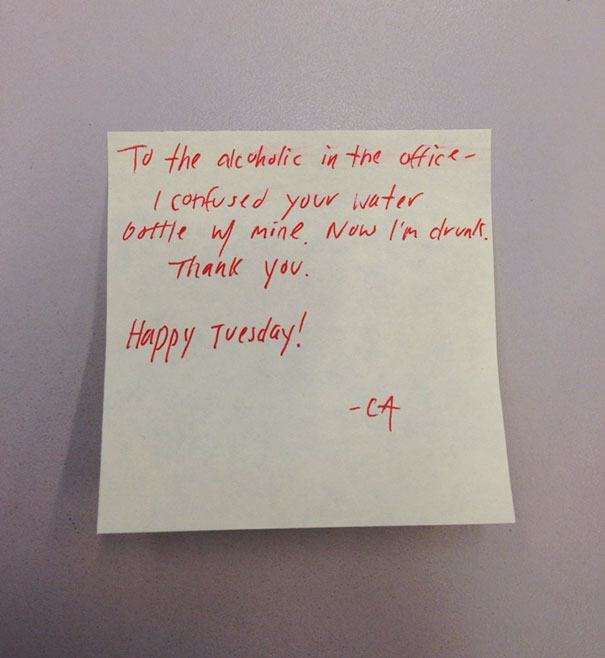 To the alcoholic in the office-
I confused your water
bottle w/ mine. Now I'm drunk.
Thank you.
Happy Tuesday!
-CA